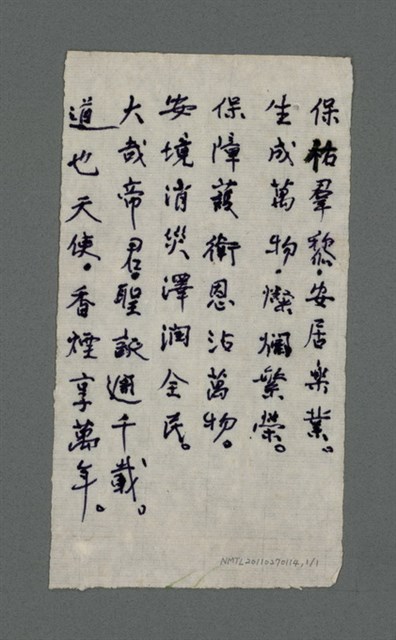 保祐羣黎。安居樂業。
生成萬物。燦爛繁榮。
保障護衛恩沾萬物。
安境消災澤潤全民。
大哉帝君。聖誕迺千載。
道也天使。香煙享萬年。
NMTL20110270114, 1/1